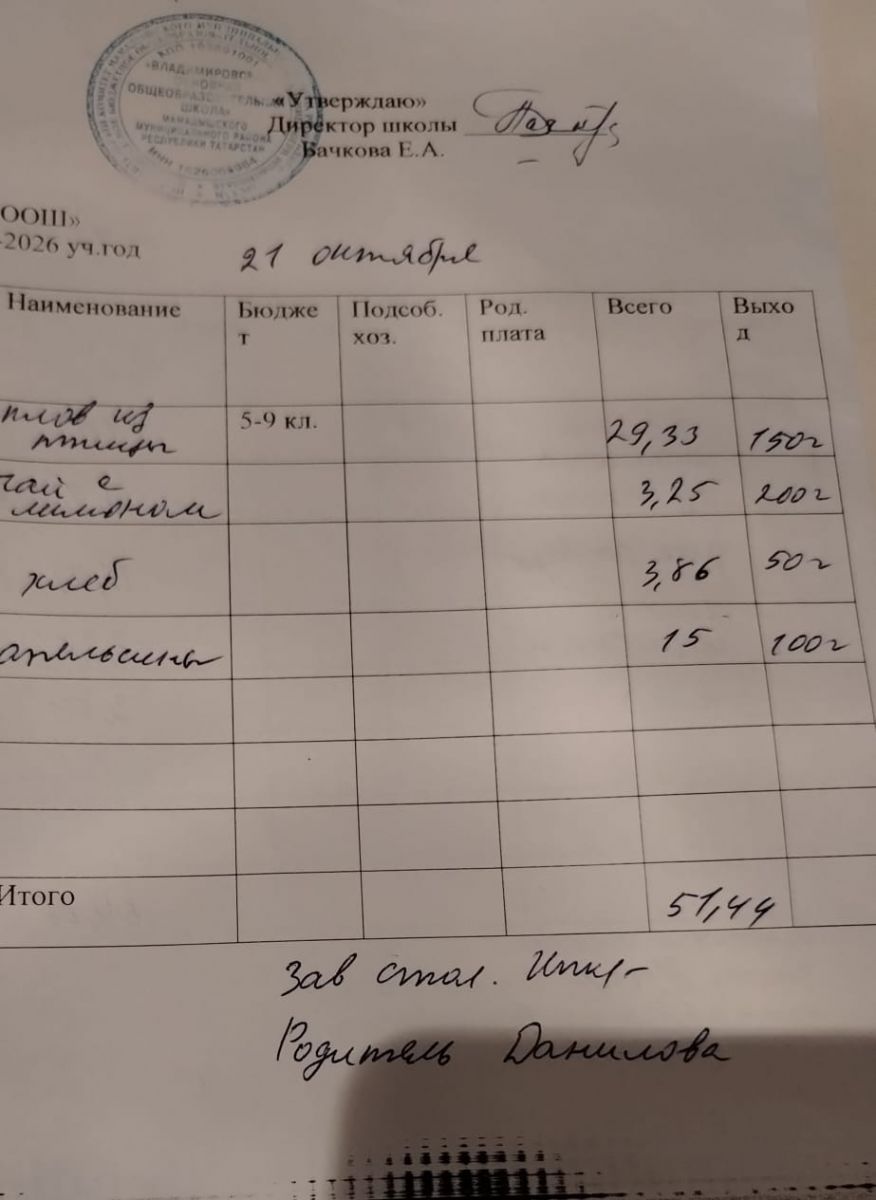 КПП 163601001
«ВЛАДИМИРОВС
ОБЩЕОБРАЗОВАТЕЛЬН
ШКОЛА»
МАМАДЫШСКОГО
МУНИЦИПАЛЬНОГО РАЙОНА
РЕСПУБЛИКИ ТАТАРСТАН
«Утверждаю»
Директор школы
Бачкова Е.А.
ООШ»
-2026 уч.год
21 октября
Наименование Бюджет Подсоб. хоз. Род. плата Всего Выход
плов из птицы 5-9 кл. 29,33 150г
чай с лимоном 3,25 200г
хлеб 3,86 50г
апельсины 15 100г
Итого 51,44
Зав стол.
Родитель Данилова